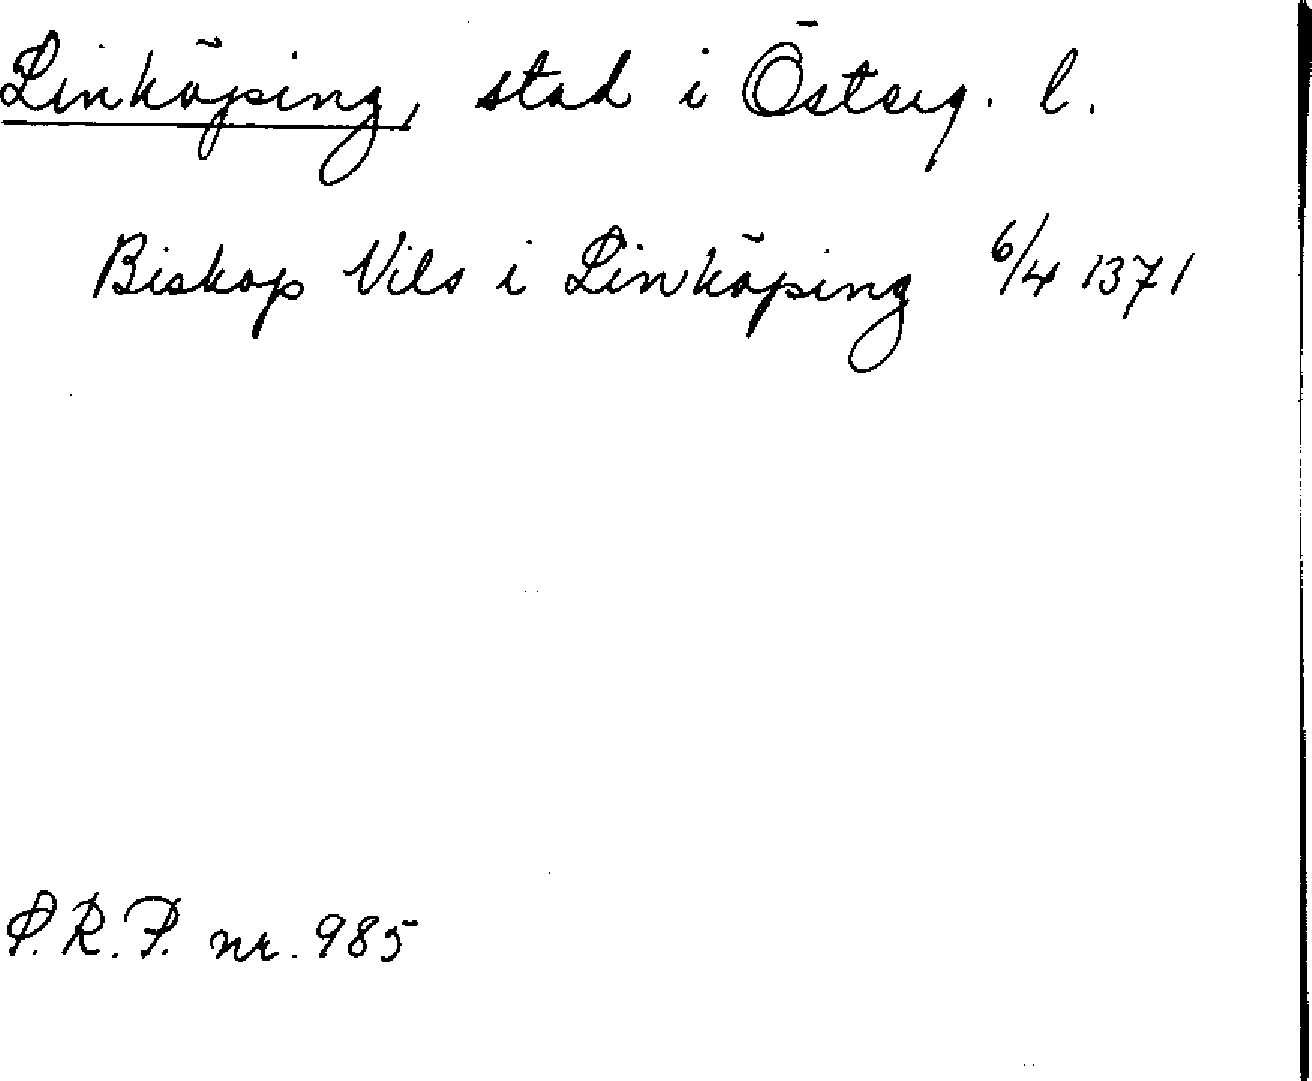 Linköping, stad i Österg. l.
Biskop Nils i Linköping 6/4 1371
P. R. P. nr. 985